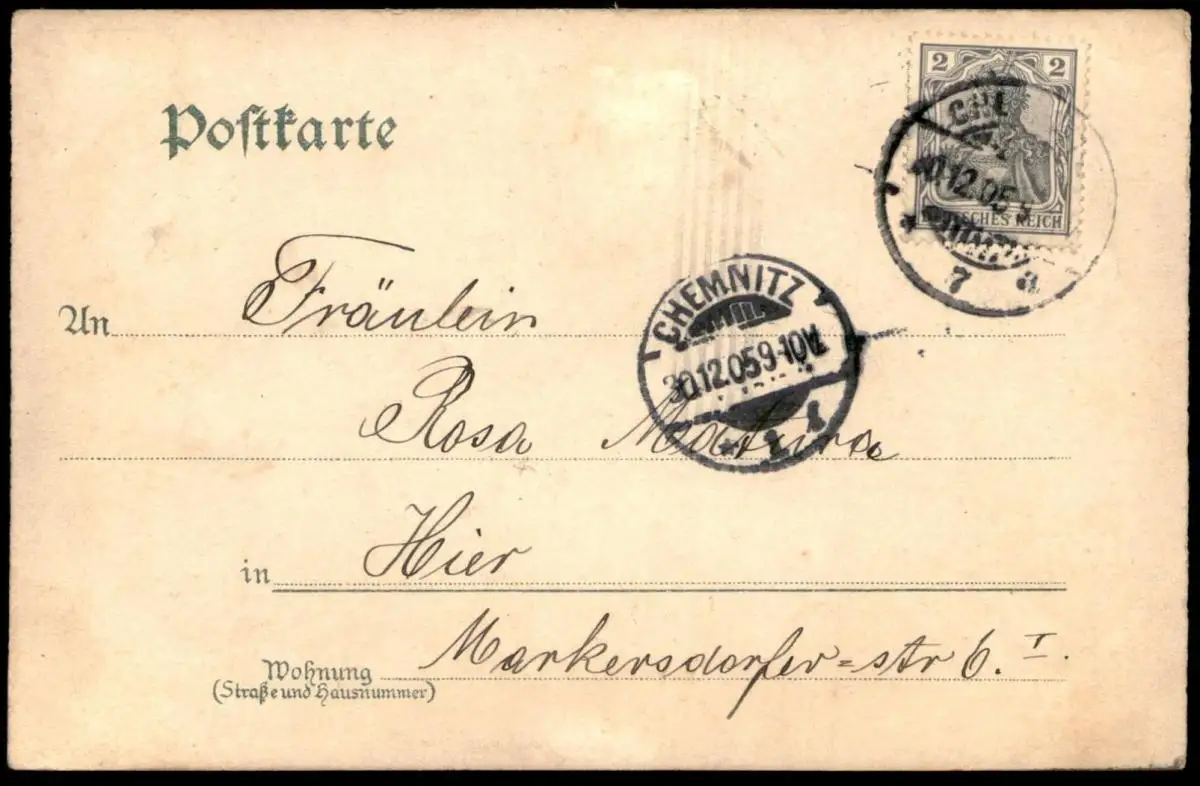 2 2
DEUTSCHES REICH
12.05
7 a
Postkarte
CHEMNITZ
30.12.05 9-10V.
An Fräulein
Rosa
in Hier
Markersdorfer=str 6. I.
Wohnung
(Straße und Hausnummer)